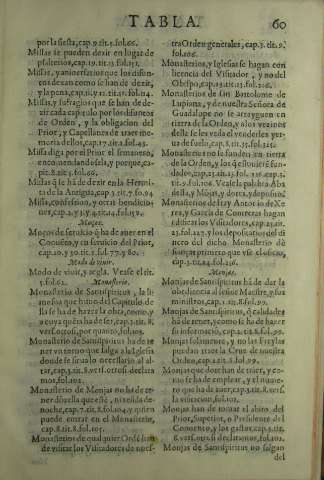 TABLA. 60
por la fiesta, cap.9.tit.5.fol.66.
Missas se pueden dezir en lugar de
psalterios, cap.19.tit.
Missas, y aniuersarios que los difun-
tos de xan como se han de dezir,
y la pena, cap.11.y 12.tit.15.fol.114.
Missas, y sufragios que se han de de-
zir cada capitulo por los difuntos
de Orden, y la obligacion del
Prior, y Capellanes de traer me-
moria dellos, cap.7.tit.
Missa diga por el Prior el semanero,
encomendandosela, y porque, ca-
pit.8.tit.5.fol.66.
Missas q̃ se hã de dezir en la Hermi-
ta de la Antigua, cap.3.tit.7.fo.94
Missa, confession, y otras bendicio-
nes, cap.2.y 3.y 4.tit.24.fol.
Moços.
Moços de seruicio q̃ ha de auer en el
Conuento, y en seruicio del Prior,
cap.10.y 30.tit.5.fol.77.y 80.
Modo de viuir.
Modo de viuir, y regla. Vease el tit.
5.fol.62.
Monasterio.
Monasterio de Santispiritus, y la li-
mosna que hizo del Capitulo de
lla se ha de hazer la obra, como, y
a cuya quẽta ha de ser, cap.3.tit.8.
verf. otrosi, por quanto, fol.102.
Monasterio de Santispiritus ha te
ner vn torno que salga a la Iglesia
donde se sirua lo necessario al al-
tar, cap.3.tit.8.vers.otrosi. declara
mos, fol.102.
Monasterio de Monjas no ha de te-
ner dõzella que sir, ni resida de no-
che, cap.7.tit.8.fol.104. y quien
puede entrar en el Monasterio,
cap.8.tit.8.fol.105.
Monasterios de qualquier Ordẽ hã
de visitar los Visitadores de nues-
tra Orden generales, cap.3.tit.9.
fol.106.
Monasterios, y Iglesias se hagan con
licencia del Visitador, y no del
Obispo, cap.
Monasterios de san Bartolome de
Lupiana, y de nuestra Señora de
Guadalupe no se arrayguen en
tierra de la Orden, y a los vezinos
della se les veda el venderles yer-
ua de suelo, cap.8.tit.
Monasterios no se fundan en tierra
de la Orden, y los q̃ se
Monasterios de frey Antonio de Xe
rez, y Garcia de Contreras hagan
edificar los Visitadores, cap.
y los depositarios del di
nero del dicho Monasterio dẽ
Monjas.
Monjas de Santispiritus hã de dar la
obediencia al señor Maestre, y sus
ministros, cap.1.tit.8.fol.99.
Monjas de Santispiritus, q̃ calidades
hã de tener, y como se ha de hazer
su informacio, cap.1.tit.8.fol.99.
Monjas solamente, y no las Freylas
puedan traer la Cruz de nuestra
Orden, cap.2.tit.8.fol.99.
Monjas que dote han de traer, y co-
mo se ha de emplear, y el nume-
ro que ha de auer, cap.3.tit.8.vers.
la vltricion, fol.101.
Monjas han de tomar el abito del
Prior, Superior, o Presidente del
Conuento, y los gastos, cap.3.tit.
8.verf. otrosi declaramos, fol.102.
Monjas de Santispiritus no salgan
del